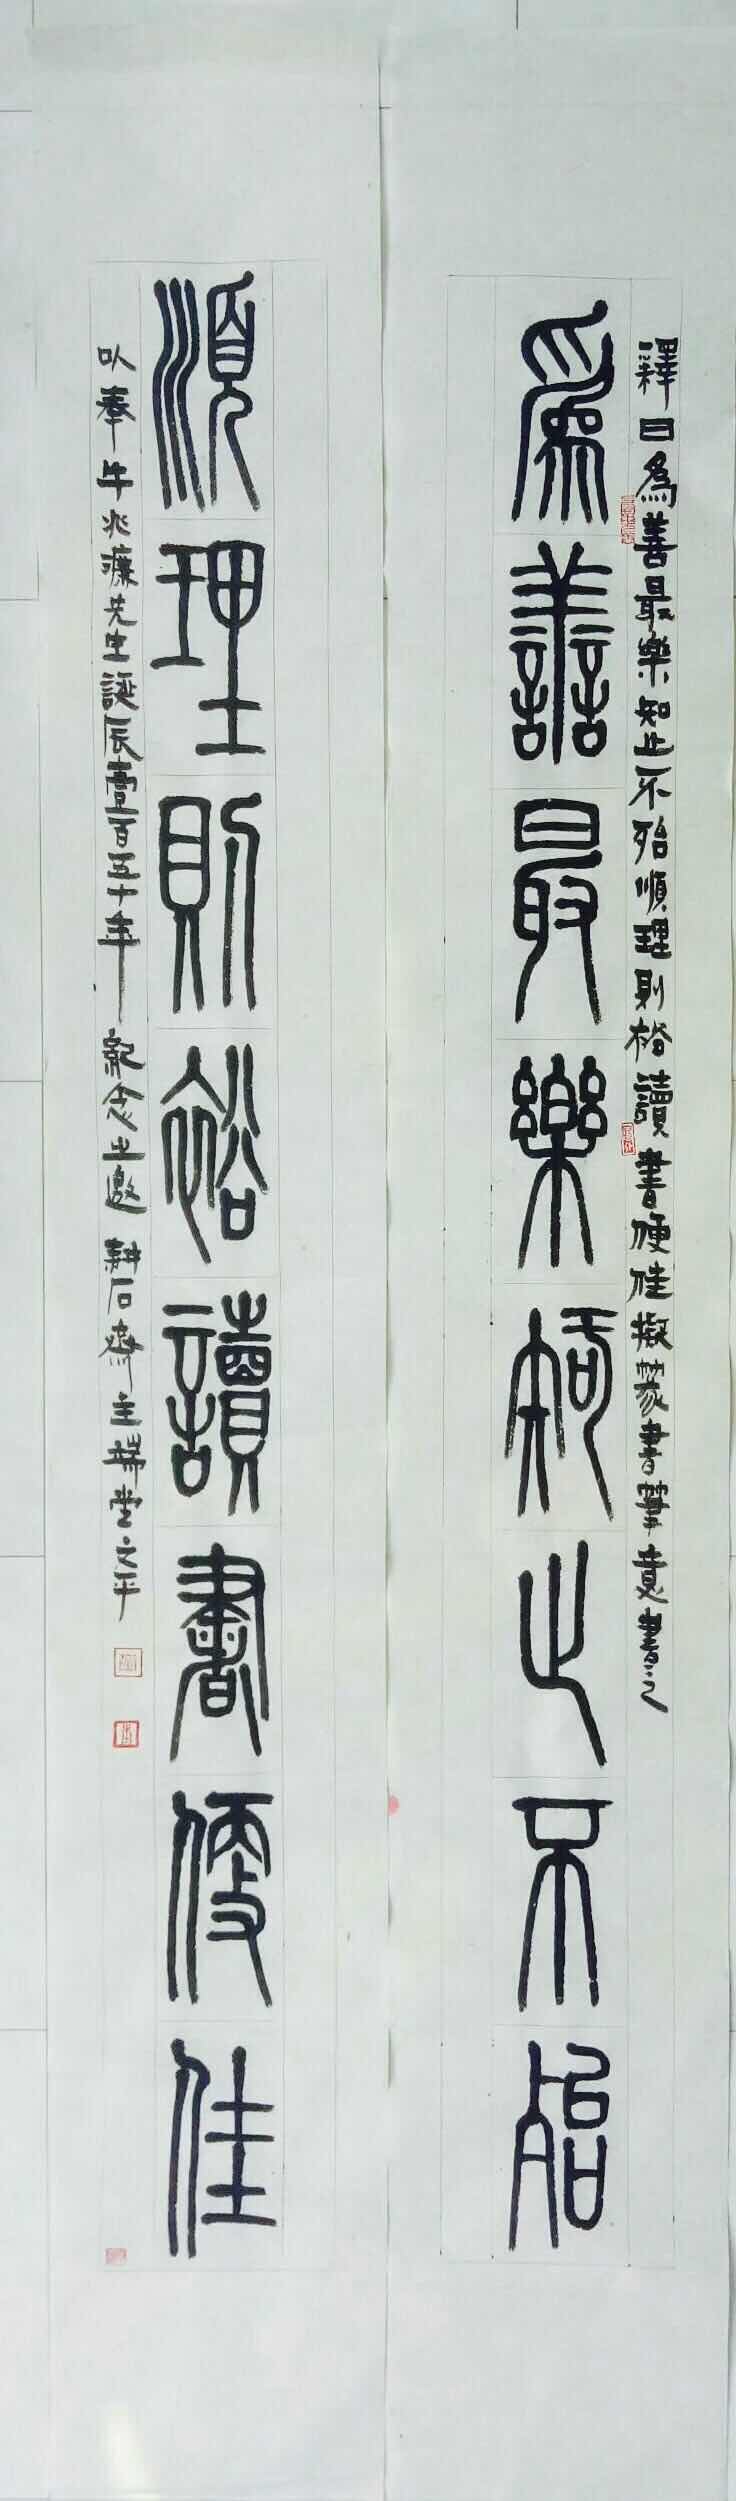 釋曰為善最樂知止不殆順理則裕讀書便佳擬篆書筆意書之
為善最樂知止不殆
順理則裕讀書便佳
以奉牛兆濂先生誕辰壹百五十年紀念之邀耕石齋主端堂文平